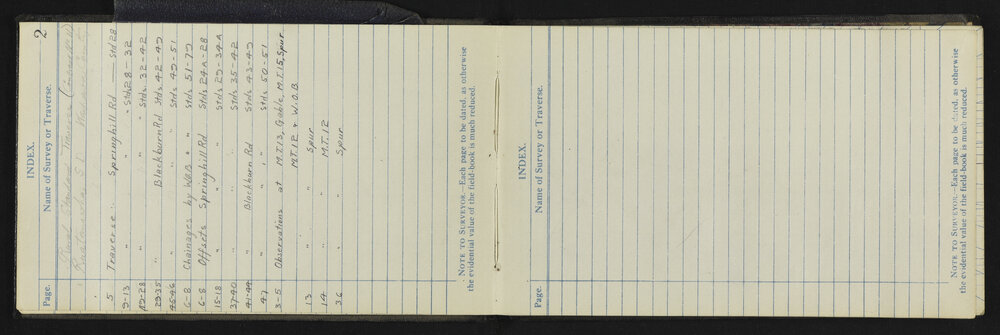 2
INDEX.
Page. Name of Survey or Traverse.
5 Traverse :- Springhill Rd —— Std 28
9-13 " " " Stds 28-32
19-28 " " " Stds 32-42
29-35 " Blackburn Rd Stds 42-49
45-46 " " " Stds 49-51
6-8 Chainages by WOB " " Stds 51-77
6-8 Offsets Springhill Rd Stds 24A-28
15-18 " " " Stds 29-34A
37-40 " " " Stds 35-42
41-44 " Blackburn Rd Stds 43-49
47 " " " Stds 50-51
3-5 Observations at M.T.13, Gable, M.T.15, Spur.
M.T.12 & W.O.B.
13 " " Spur
14 " " M.T.12
36 " " Spur.
NOTE TO SURVEYOR.—Each page to be dated, as otherwise
the evidential value of the field-book is much reduced.
INDEX.
Page. Name of Survey or Traverse.
NOTE TO SURVEYOR.—Each page to be dated, as otherwise
the evidential value of the field-book is much reduced.